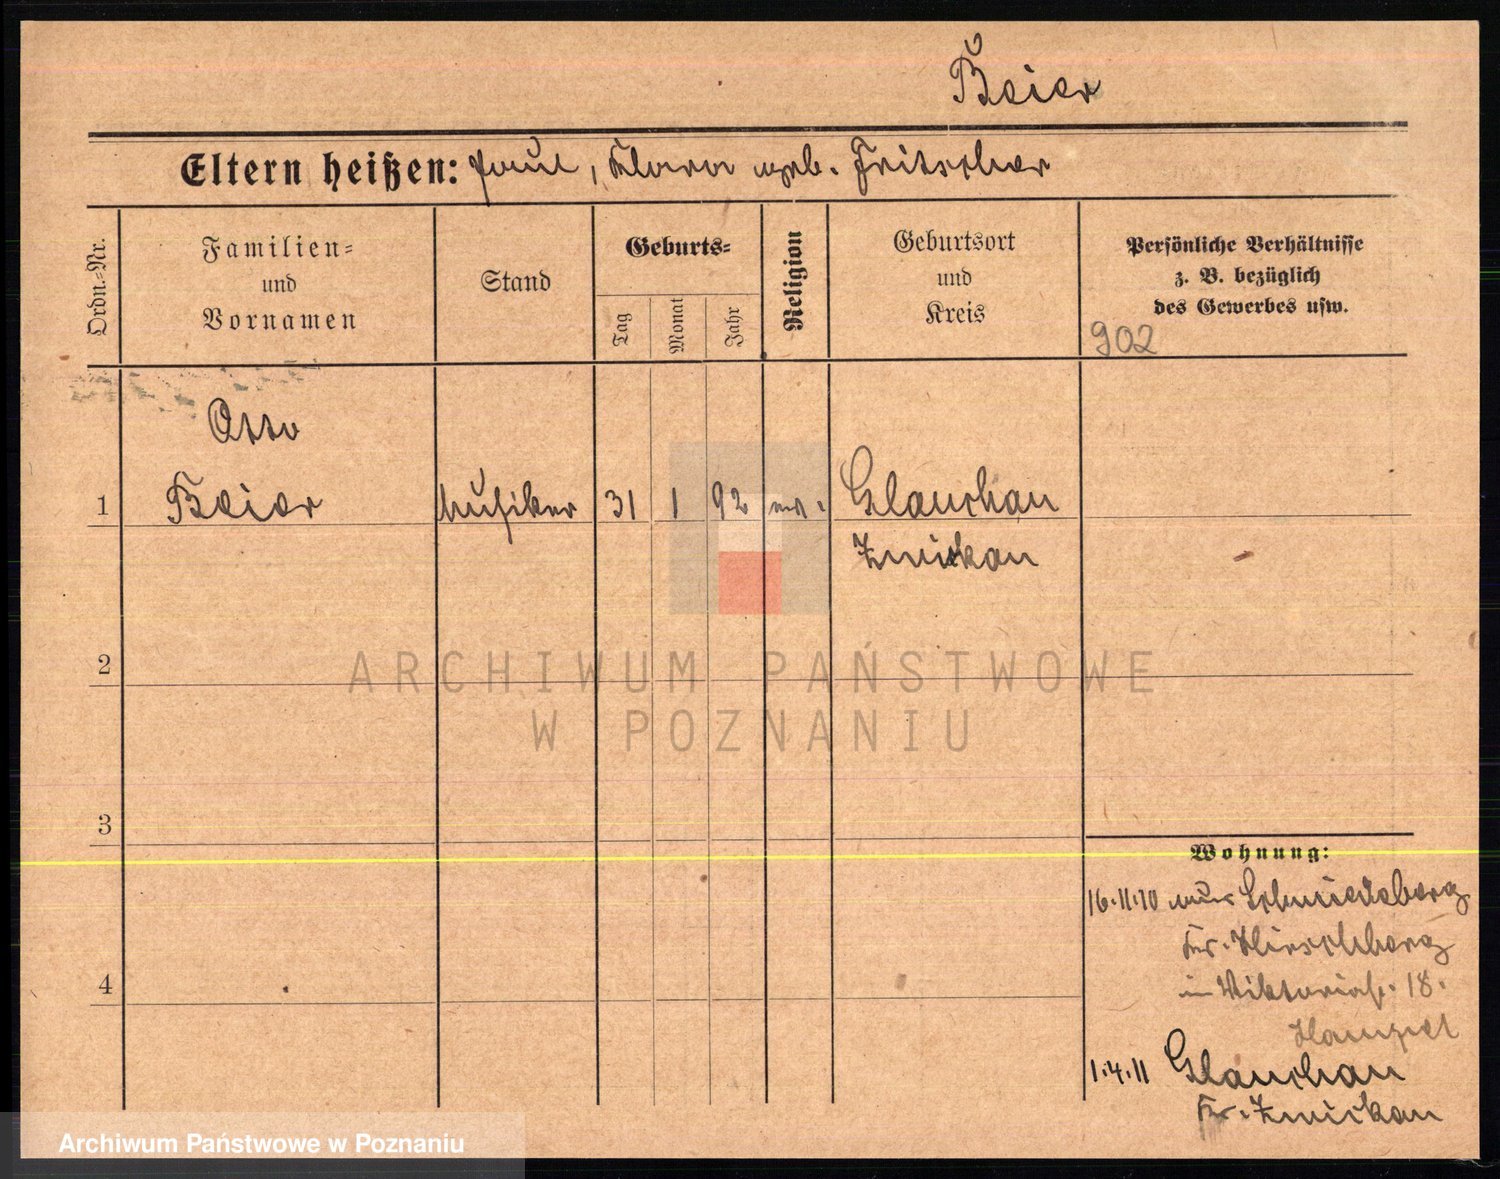 Beier
Eltern heißen: Paul, Klara geb. Fritscher
Ordn.-Nr.
Familien-
und
Vornamen
Stand
Geburts-
Tag
Monat
Jahr
Religion
Geburtsort
und
Kreis
Persönliche Verhältnisse
z. B. bezüglich
des Gewerbes usw.
902
Otto
1 Beier Musiker 31 1 92 ev. Glauchau
Zwickau
2
3
4
Wohnung:
16.11.10 aus Schmiedeberg
Kr. Hirschberg
in Viktoriastr. 18.
1.4.11 Glauchau
Kr. Zwickau
ARCHIWUM PAŃSTWOWE
W POZNANIU
Archiwum Państwowe w Poznaniu